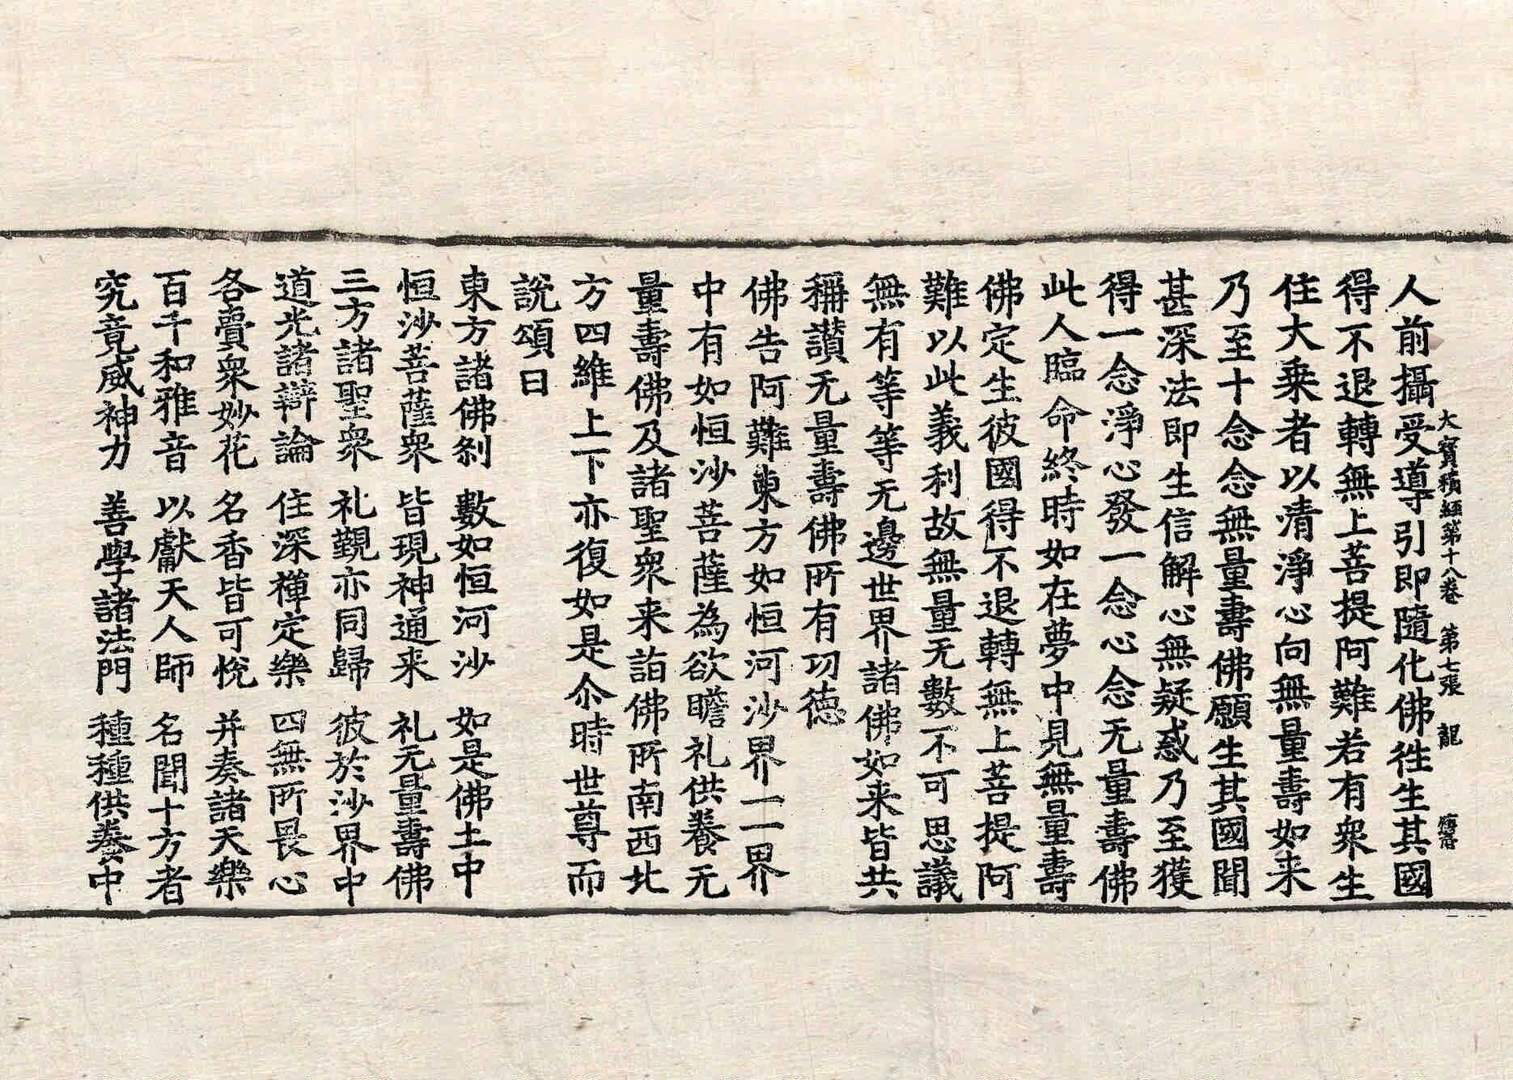 大寶積經第十八卷　第七張　龍
人前攝受導引即隨化佛徃生其國
得不退轉無上菩提阿難若有衆生
住大乗者以清淨心向無量壽如来
乃至十念念無量壽佛願生其國聞
甚深法即生信解心無疑惑乃至獲
得一念淨心發一念心念无量壽佛
此人臨命終時如在夢中見無量壽
佛定生彼國得不退轉無上菩提阿
難以此義利故無量无數不可思議
無有等等无邊世界諸佛如来皆共
稱讃无量壽佛所有功徳
佛告阿難東方如恒河沙界一一界
中有如恒沙菩薩為欲瞻礼供養无
量壽佛及諸聖衆来詣佛所南西北
方四維上下亦復如是尒時世尊而
說頌曰
東方諸佛刹　數如恒河沙　如是佛土中
恒沙菩薩衆　皆現神通来　礼无量壽佛
三方諸聖衆　礼覲亦同歸　彼於沙界中
道光諸辯論　住深禪定樂　四無所畏心
各賷衆妙花　名香皆可悅　并奏諸天樂
百千和雅音　以獻天人師　名聞十方者
究竟威神力　善學諸法門　種種供養中